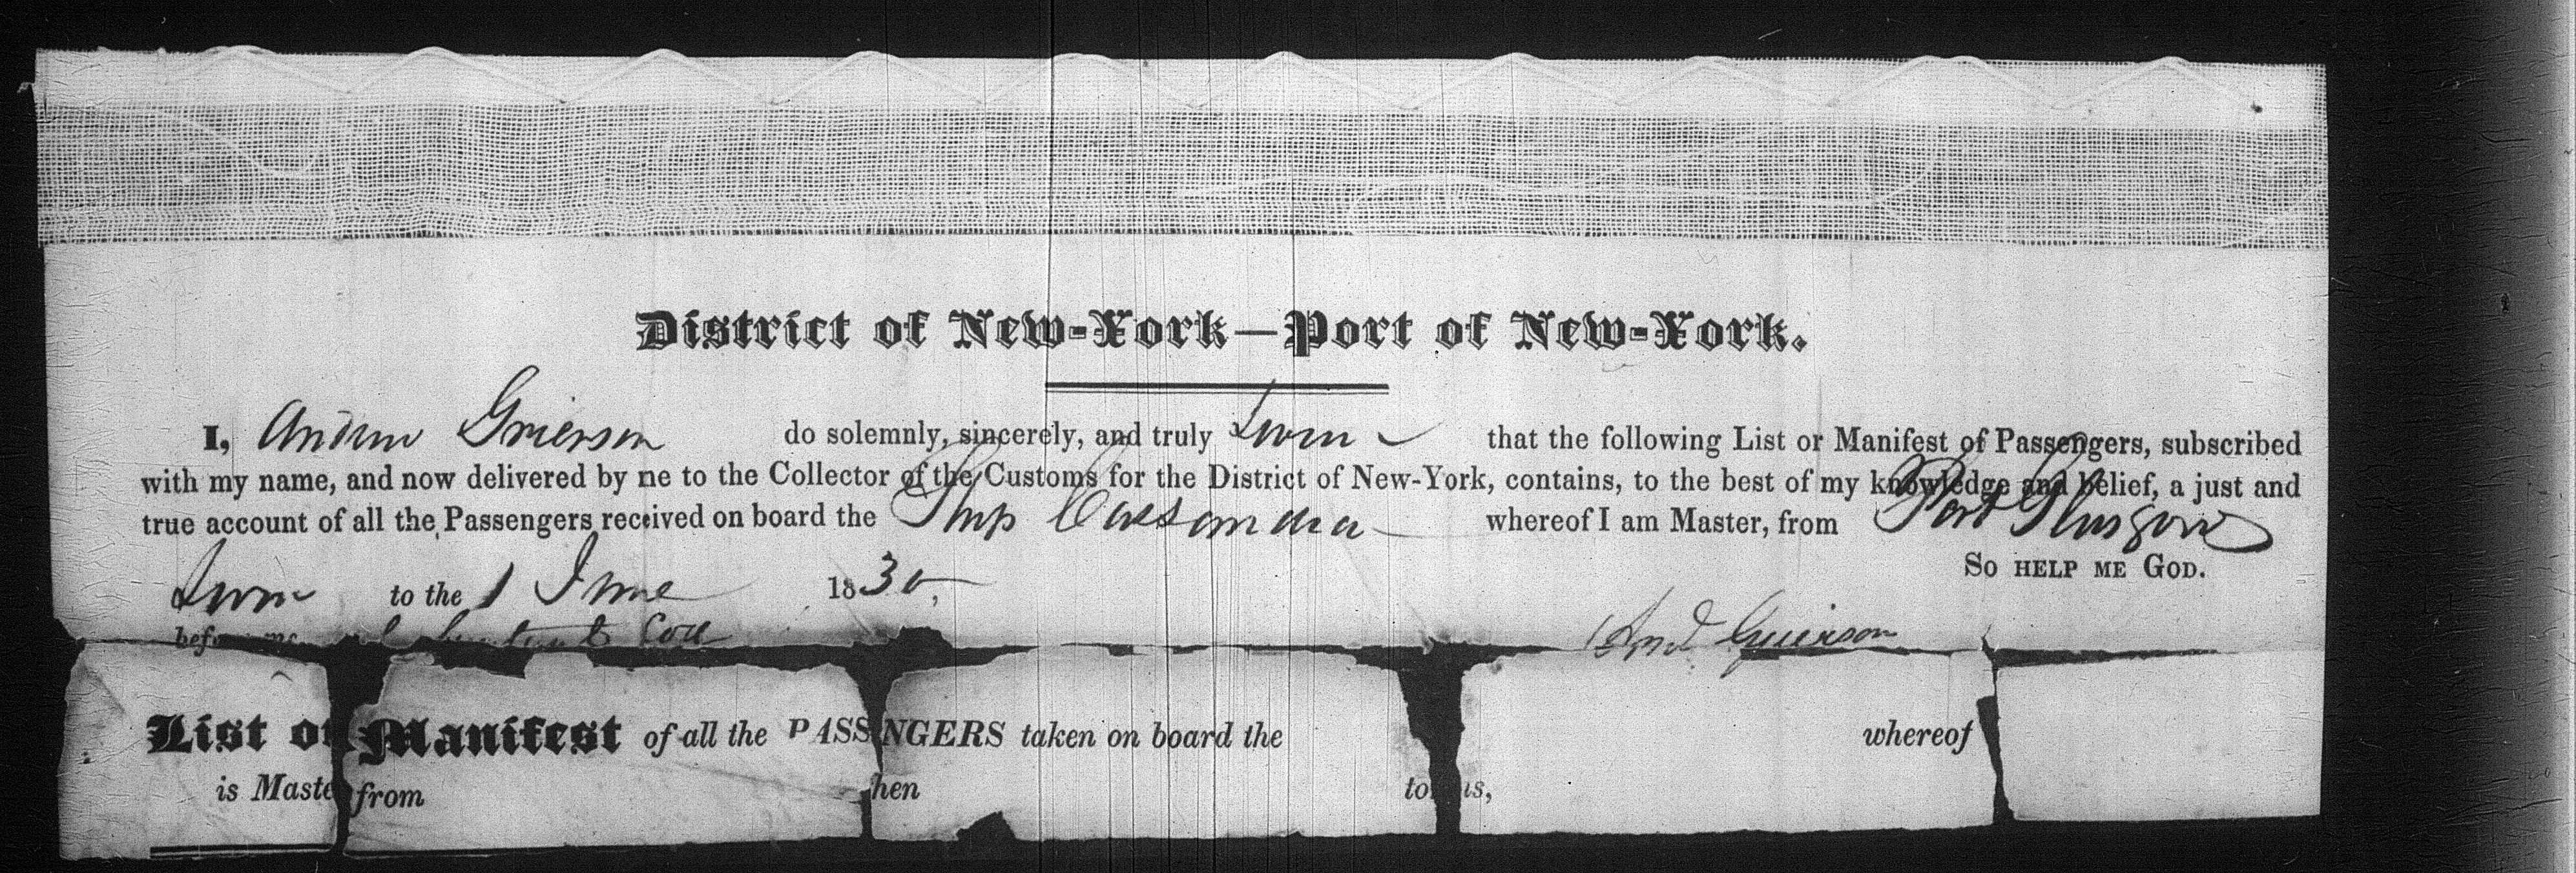 District of New-York—Port of New-York.
I, Andrew Grierson do solemnly, sincerely, and truly Swear that the following List or Manifest of Passengers, subscribed
with my name, and now delivered by me to the Collector of the Customs for the District of New-York, contains, to the best of my knowledge and belief, a just and
true account of all the Passengers received on board the Ship Cassandra whereof I am Master, from Port Glasgow
So HELP ME GOD.
Sworn to the 1 June 1830,
before me And Grierson
List or Manifest of all the PASSENGERS taken on board the whereof
is Master from tons,